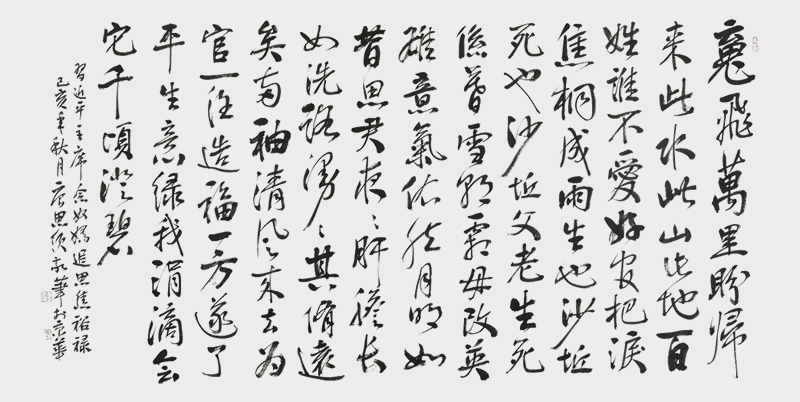 魂飛萬里盼歸
来此水此山此地百
姓誰不愛好官把淚
焦桐成雨生也沙坵
死也沙坵父老生死
係暮雪朝霜毋改英
雄意氣依然月明如
昔思君夜〻肝膽長
如洗路漫〻其脩遠
矣兩袖清风来去为
官一任造福一方遂了
平生意绿我涓滴会
它千頃澄碧
習近平主席念奴嬌追思焦裕禄
己亥年秋月唐思 筆於京華